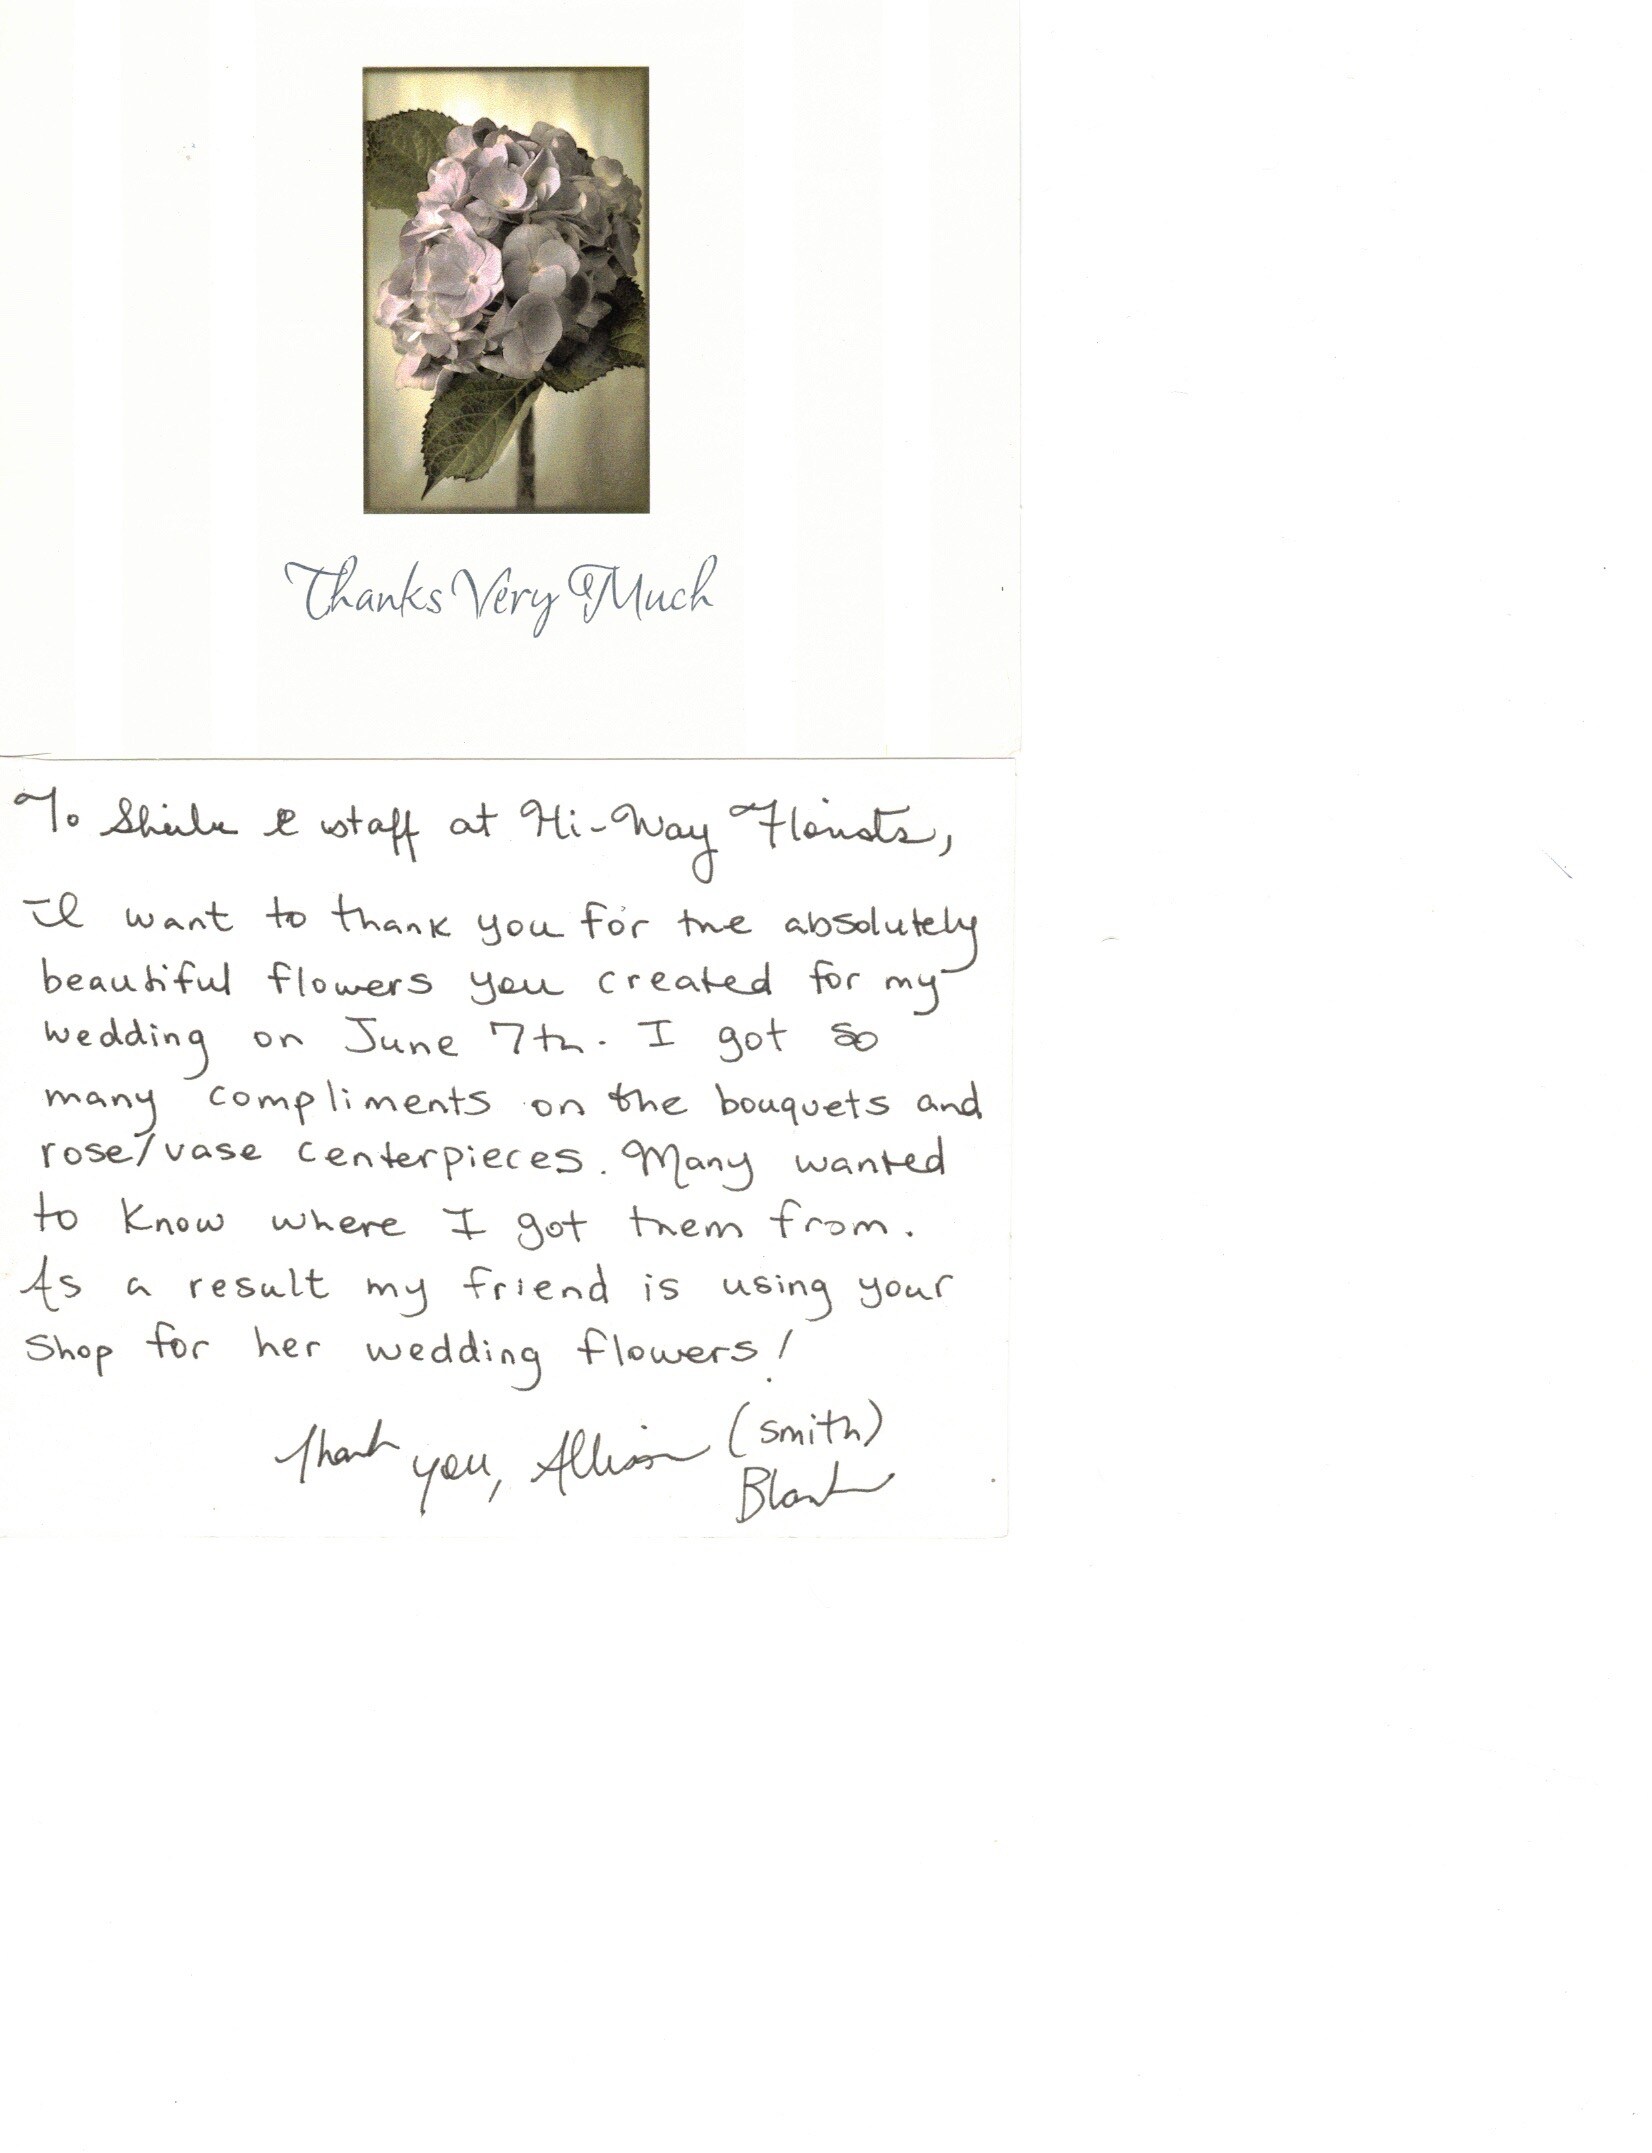 Thanks Very Much
To Sheila & staff at Hi-Way Florists,
I want to thank you for the absolutely
beautiful flowers you created for my
wedding on June 7th. I got so
many compliments on the bouquets and
rose/vase centerpieces. Many wanted
to know where I got them from.
As a result my friend is using your
shop for her wedding flowers!
Thank you, Allison (Smith)